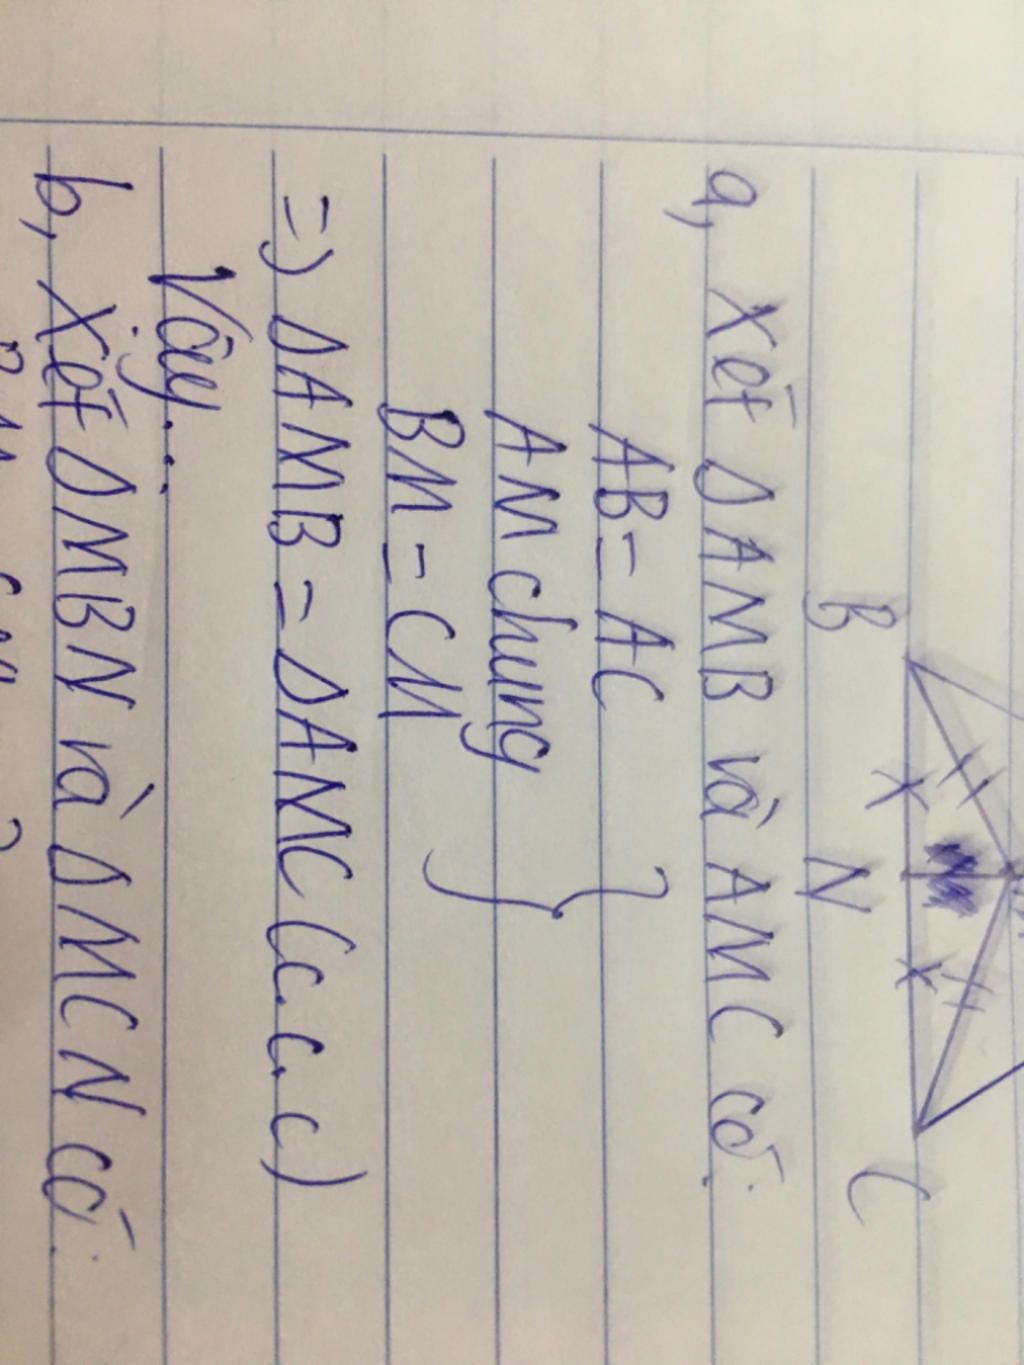 B N C
a, Xét ΔAMB và ΔAMC có:
AB = AC
AM chung
BM = CM
=) ΔAMB = ΔAMC (c.c.c)
Vậy...
b, Xét ΔMBN và ΔMCN có: